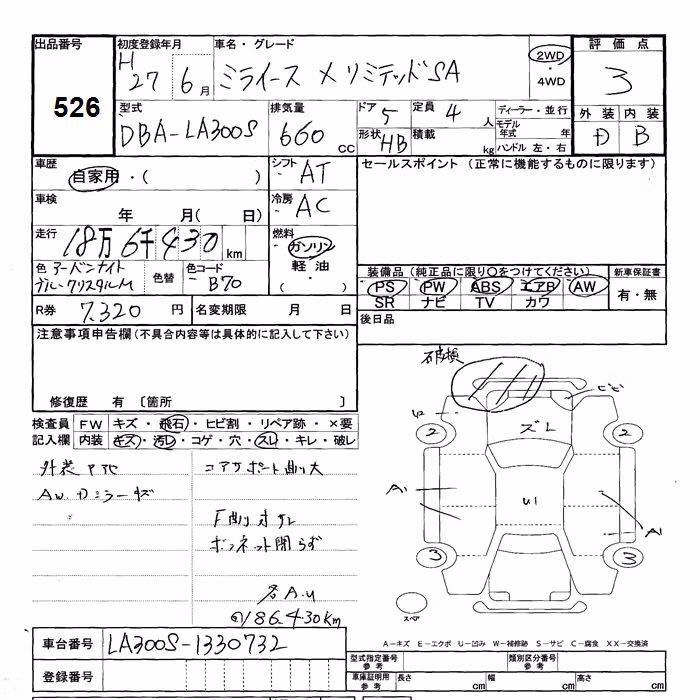 出品番号 初度登録年月 車名・グレード 評価点
526
H 27 6月 ミライース メリミテッドSA 2WD ・4WD 3
型式 排気量 ドア 5 定員 4人 ディーラー・並行 外装 内装
DBA-LA300S 660 CC 形状 HB 積載 kg モデル年式 年 ハンドル 左・右 D B
車歴 自家用・( ) シフト AT セールスポイント (正常に機能するものに限ります)
車検 年 月( 日) 冷房 AC
走行 18万6千430km 燃料 ガソリン 軽油 ・( )
色 アーバンナイトブルークリスタルM 色替 色コード B70
装備品(純正品に限り○をつけてください) 新車保証書
PS PW ABS エアB AW 有・無
SR ナビ TV カワ
R券 7,320円 名変期限 月 日 後日品
注意事項申告欄(不具合内容等は具体的に記入して下さい)
修復歴 有 〔箇所 〕
検査員記入欄 FW キズ・飛石・ヒビ割・リペア跡・×要
内装 キズ・汚レ・コゲ・穴・スレ・キレ・破レ
コアサポート曲り大
AW キズ
F曲り
ボンネット閉らず
各A.U
186.430km
ズレ
2 2
A1 U1 A1
3 3
スペア
A-キズ E-エクボ U-凹み W-補修跡 S-サビ C-腐食 XX-交換済
車台番号 LA300S-1330732
登録番号
型式指定番号 参考 類別区分番号 参考
車庫証明用 参考 長さ cm 幅 cm 高さ cm